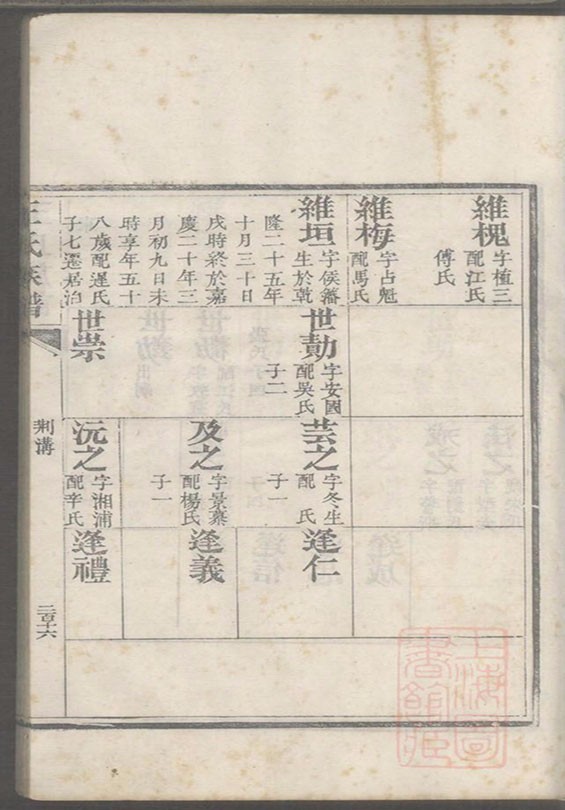 維槐
字植三
配江氏
傅氏
維梅
字占魁
配馬氏
維垣
字侯藩
生於乾
隆二十五年
十月三十日
戌時終於嘉
慶二十年三
月初九日未
時享年五十
八歲配遲氏
子七遷居泊
荆溝
世勣
字安國
配吳氏
子二
世崇
芸之
字冬生
配 氏
子一
及之
字景業
配楊氏
子一
沅之
字湘浦
配辛氏
逢仁
逢義
逢禮
王氏族譜
二百十六
上海圖書館藏